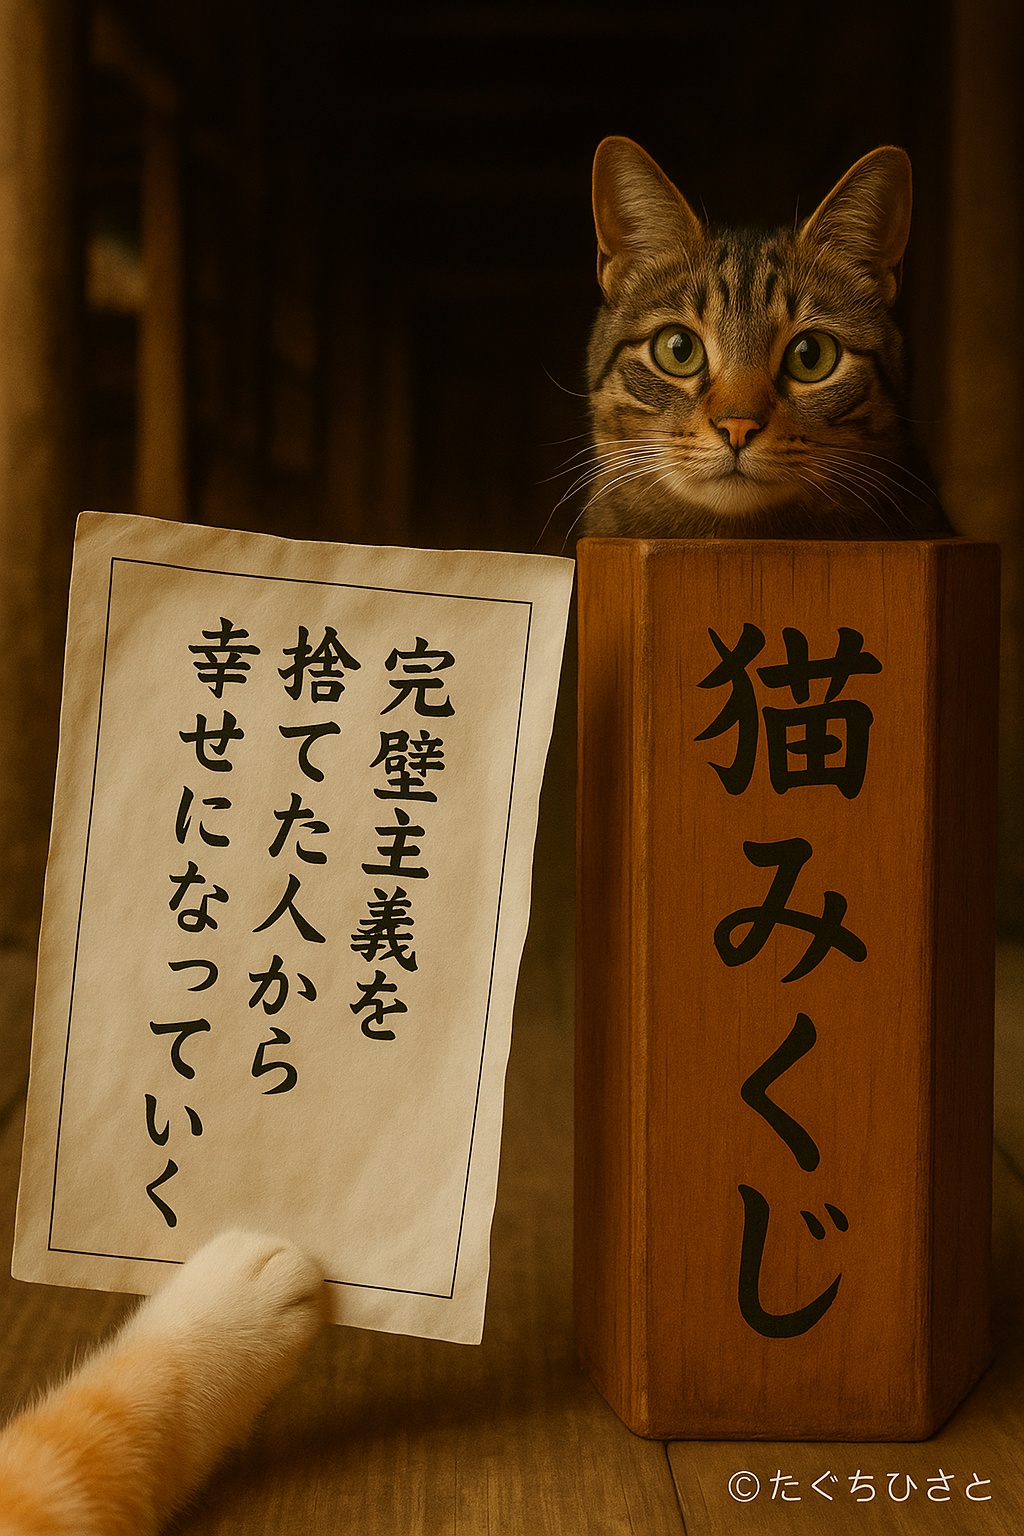 完璧主義を
捨てた人から
幸せになっていく
猫みくじ
©たぐちひさと